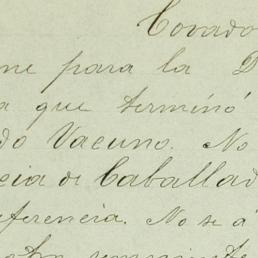 Covado
me para la D
a que terminó
do Vacuno. No
cia de Caballad
eferencia. No se á